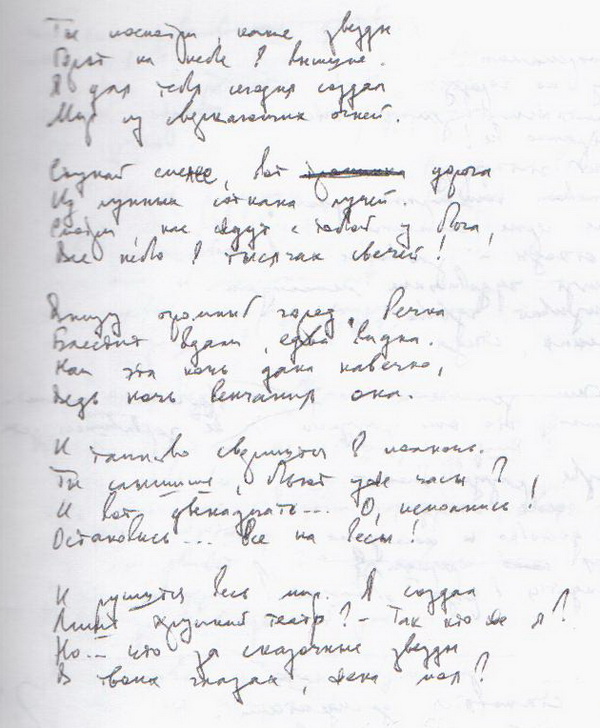 Ты посмотри, какие звезды
Горят на небе в вышине.
Я для тебя сегодня создал
Мир из сверкающих огней.
Ступай смелее, вот дорога
Из лунных соткана лучей.
Смотри, нас ждут с тобой у Бога,
Все небо в тысячах свечей!
Внизу огромный город. Речка
Блестит вдали, едва видна.
Нам эта ночь дана навечно,
Ведь ночь венчания она.
И таинство свершится в полночь.
Ты слышишь, бьют уже часы?
И вот двенадцать... О, исполнись!
Остановись... Все на весы!
И рушится весь мир. Я создал
Лишь хрупкий театр? - Так кто же я?
Но... что за сказочные звезды
В твоих глазах, жена моя?